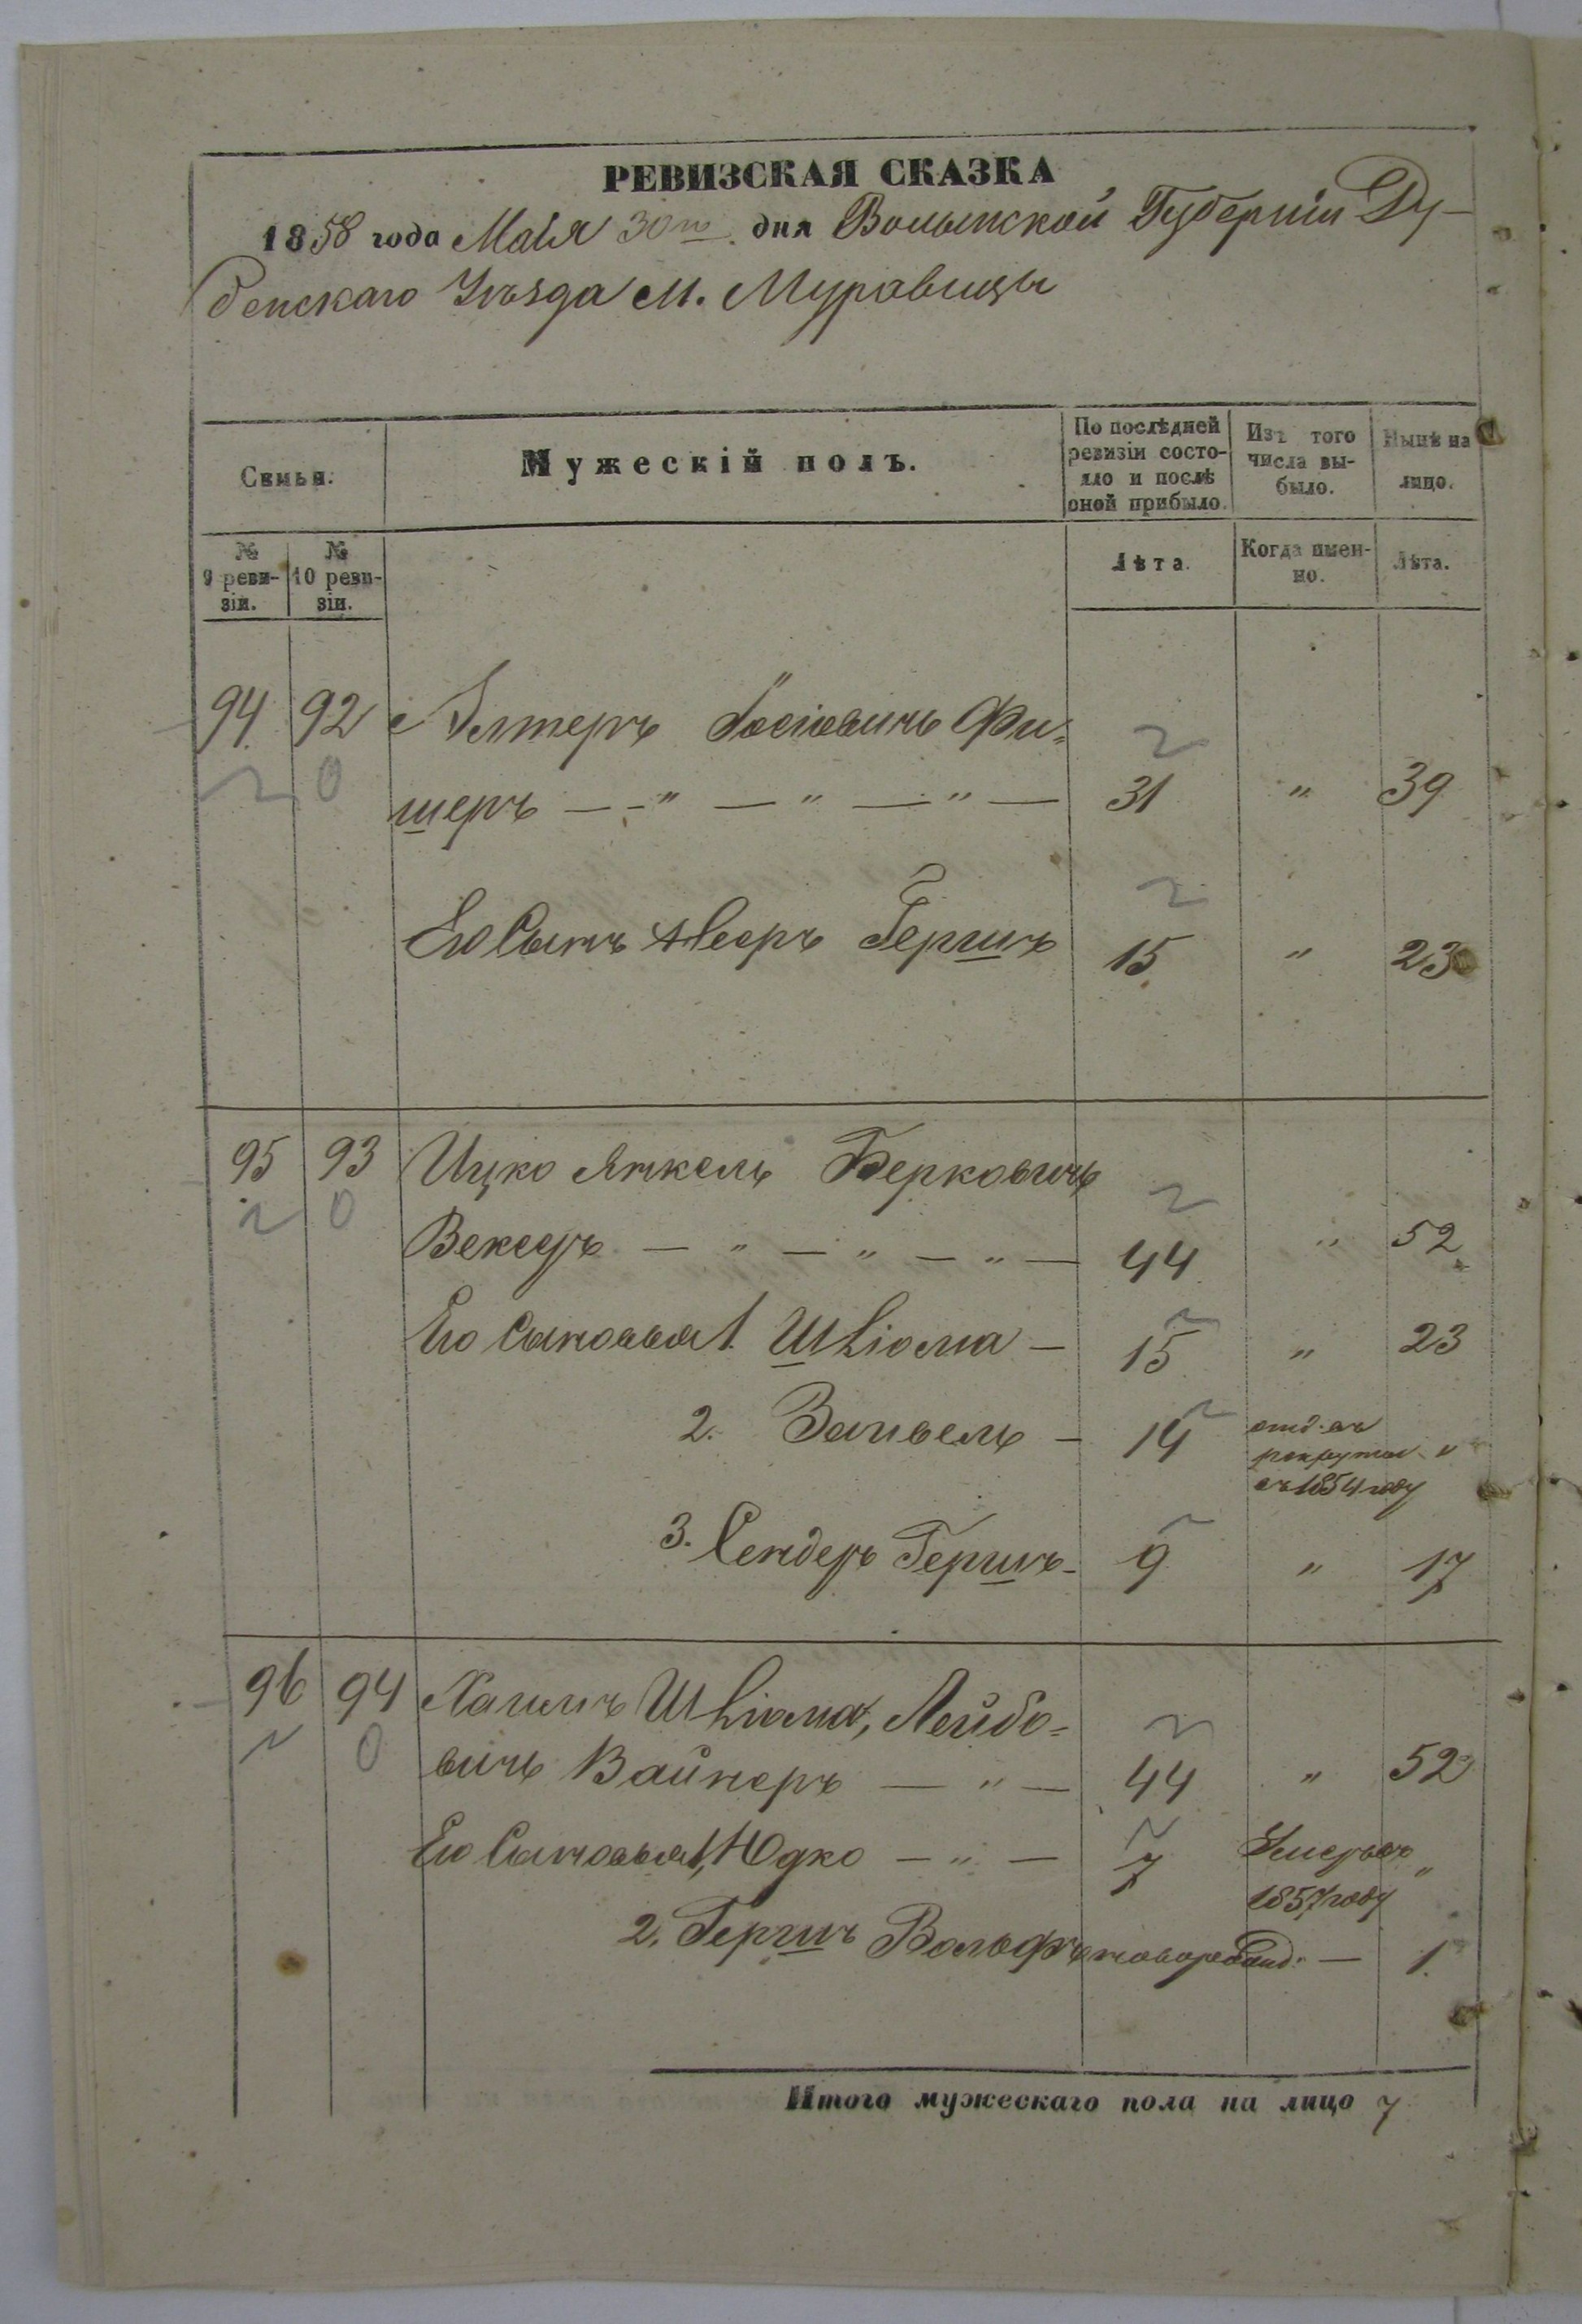 РЕВИЗСКАЯ СКАЗКА
1858 года Маія 30го дня Волынской Губерніи Ду-
бенскаго Уѣзда м. Муравицы
Семьи.
Мужескій полъ.
По послѣдней ревизіи состо-
яло и послѣ оной прибыло.
Изъ того числа вы-
было.
Нынѣ на лицо.
№ 9 реви-
зіи.
№ 10 реви-
зіи.
Лѣта.
Когда имен-
но.
Лѣта.
94 92 Алтеръ Іосіовичъ Фи=
шеръ — " — " — " — 31 " 39
Его Сынъ Лейзеръ Гершъ 15 " 23
95 93 Ицко Янкель Берковичъ
Векслръ — " — " — " — 44 " 52
Его Сыновья 1. Шліома — 15 " 23
2. Занвель — 14 отд. въ
рекруты "
въ 1854 году
3. Сендеръ Гершъ — 9 " 17
96 94 Хаимъ Шліома, Лейбо=
вичъ Вайнеръ — " — 44 " 52
Его Сыновья 1, Юдко — " — 7 Умеръ въ "
1857 году
2. Гершъ Вольфъ новорожд. — 1.
Итого мужескаго пола на лицо 7